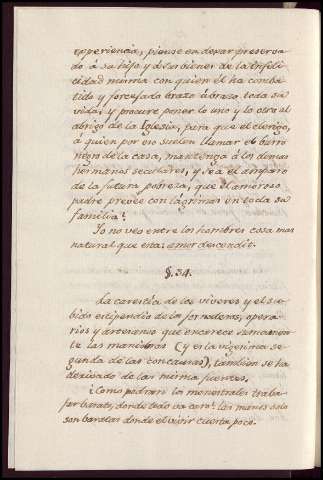 experiencia, piense en dexar preserva-
do á su hijo y á sus bienes de la infeli-
cidad misma con quien él ha comba-
tido y forcejado brazo á brazo toda su
vida, y procure poner lo uno y lo otro al
abrigo de la Iglesia, para que el clerigo,
á quien por eso suelen llamar el
negro de la casa, mantenga á los demas
hermanos seculares, y sea el amparo
de la futura pobreza, que el amoroso
padre prevee con lagrimas en toda su
familia?
Yo no veo entre los hombres cosa mas
natural que esta: amor descendit.
§. 34.
La carestía de los viveres y el su-
bido estipendio de los jornaleros, opera-
rios y artesanos que encarece
te las maniobras (y es la vigesima se-
gunda de las concausas), tambien se ha
derivado de las mismas fuentes.
¿Como podran los menestrales traba-
jar barato, donde todo va caro? las manos solo
son baratas donde el vivir cuesta poco.